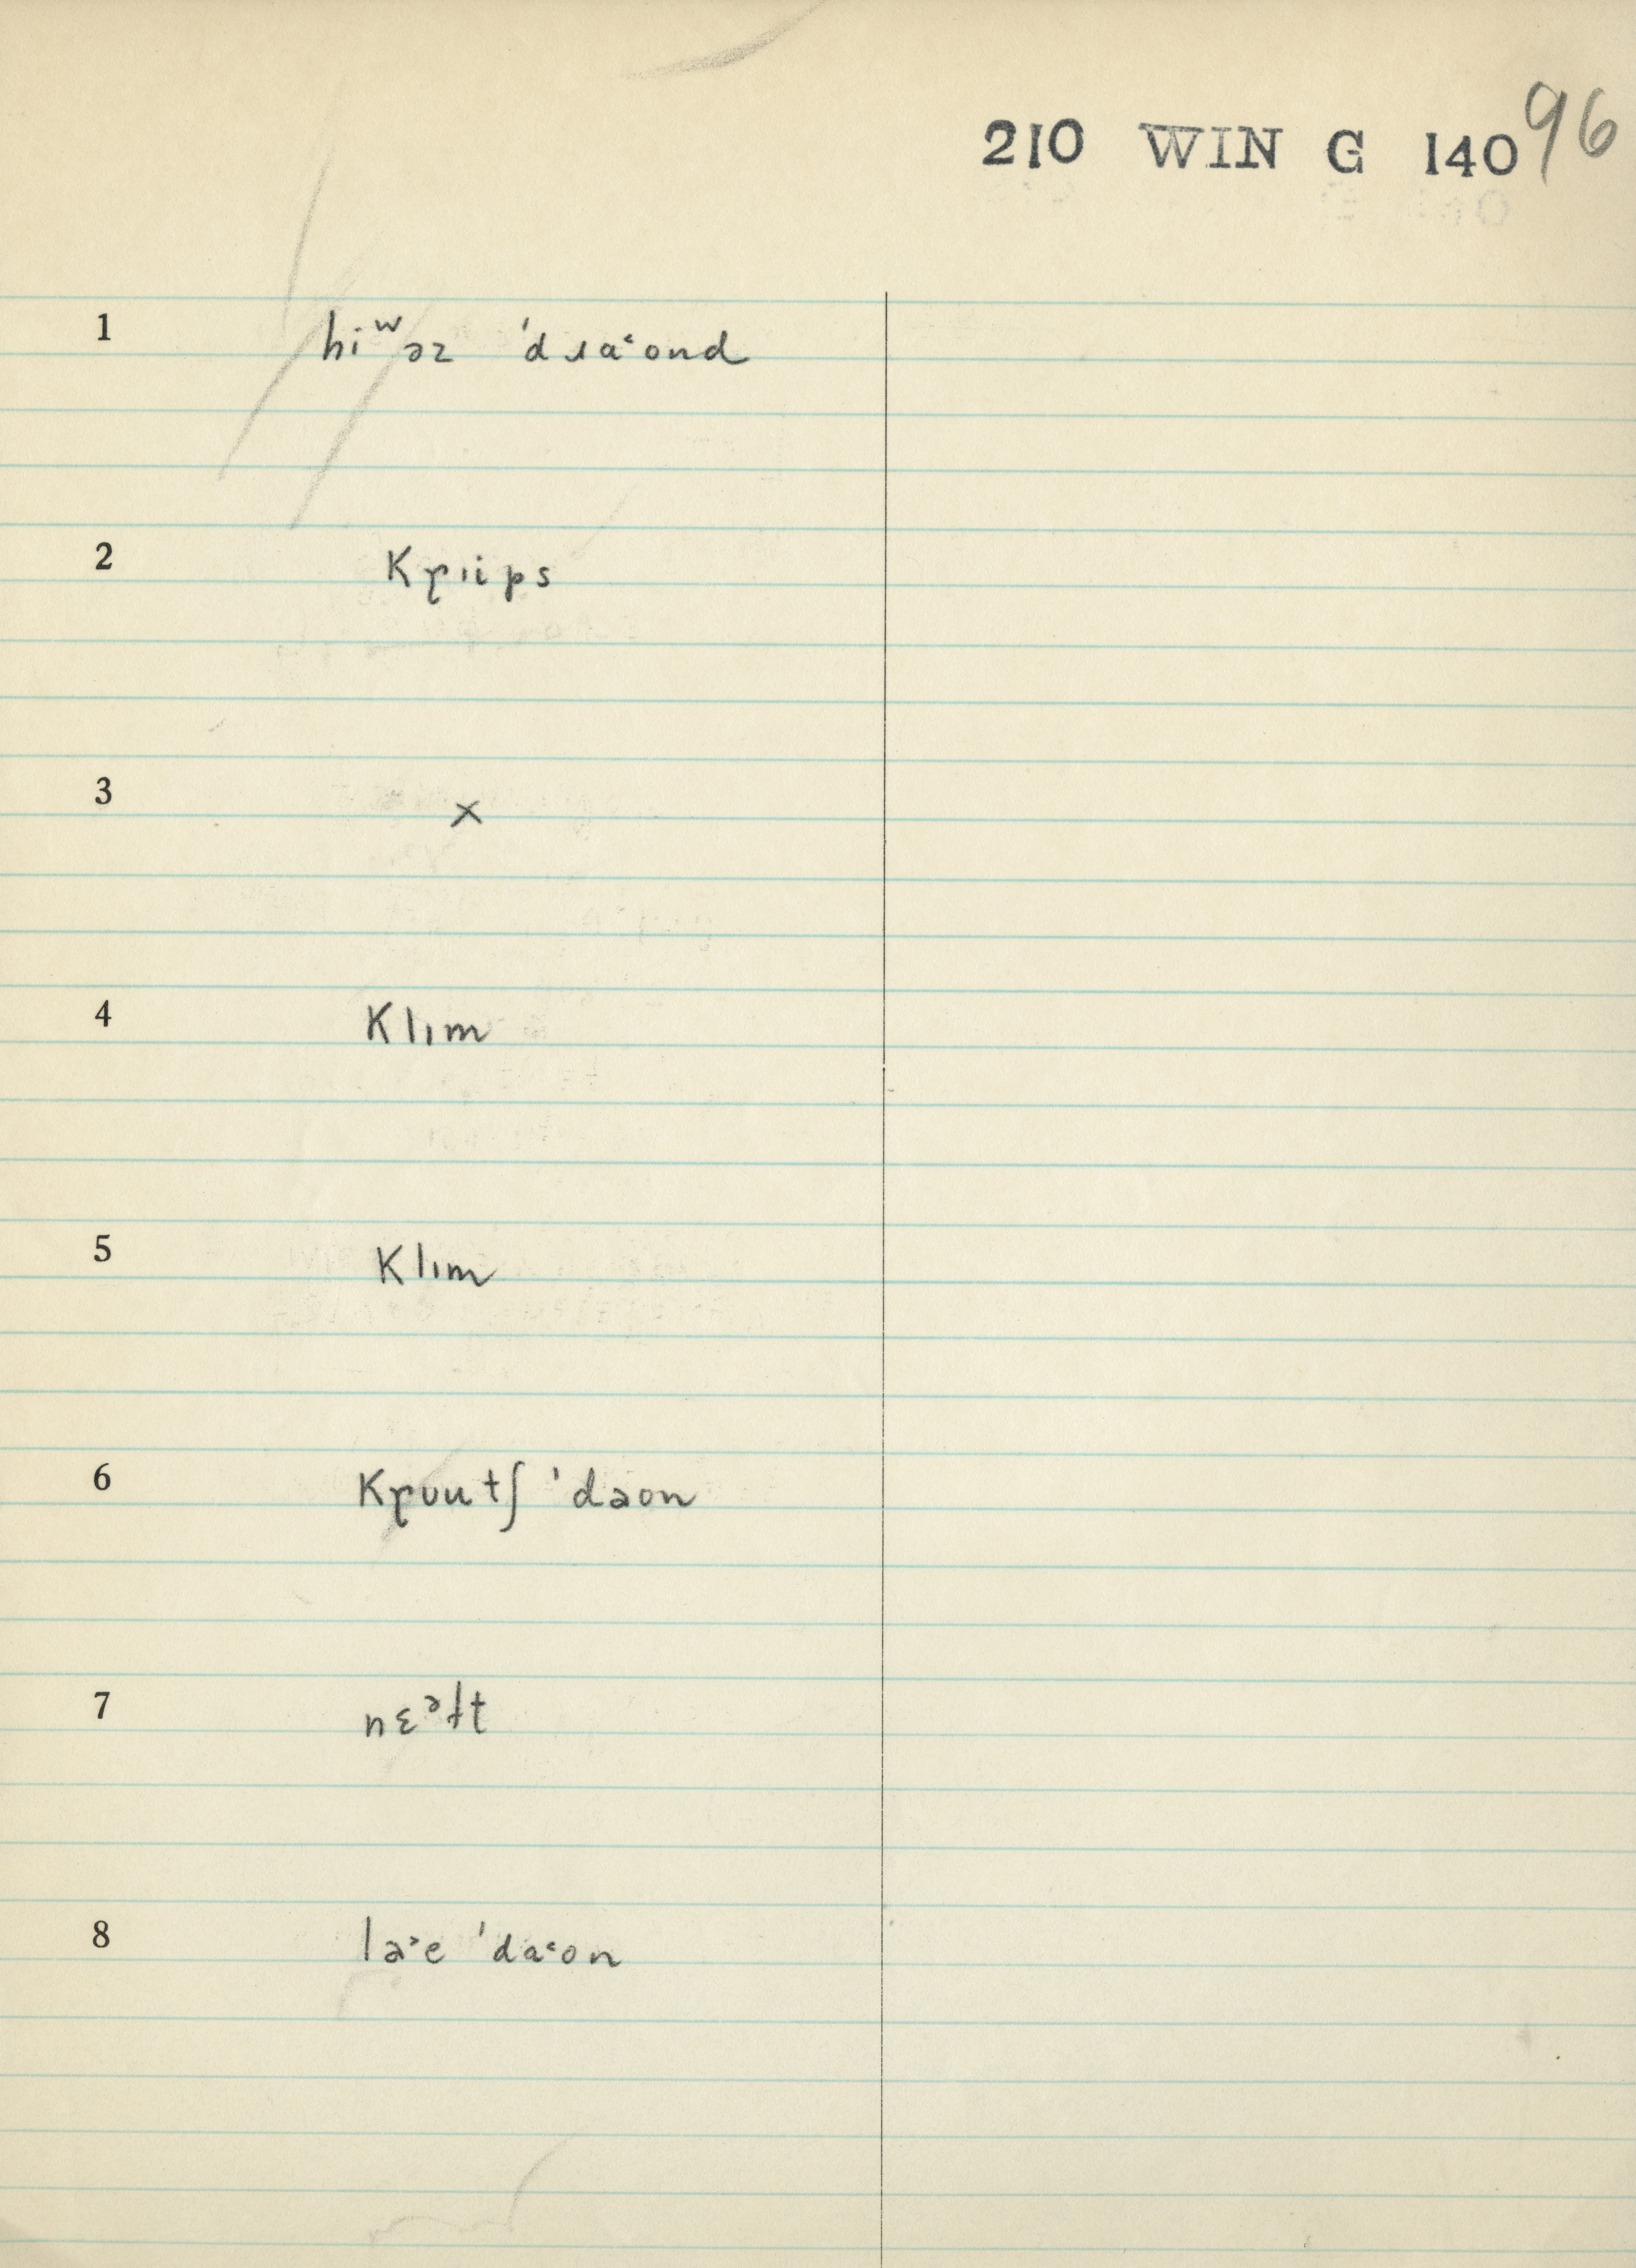 210 WIN G 140 96
1 hiʷəz ˈdɹaˤond
2 kɼɪips
3 x
4 klɪm
5 klɪm
6 kɼʊutʃ ˈdaon
7 nɛᵊɫt
8 laˤe ˈdaˤon